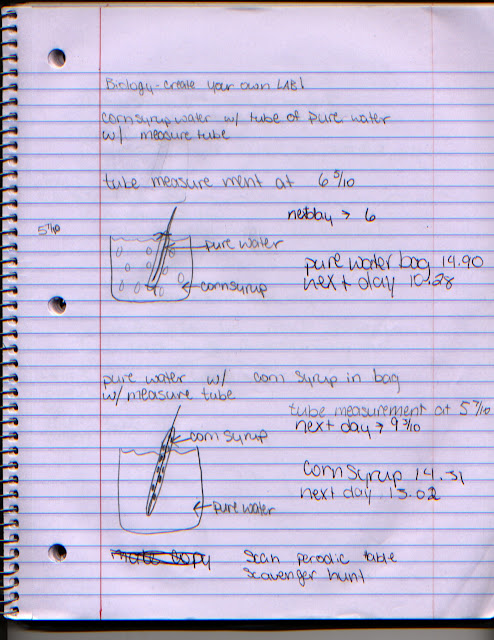 Biology - create your own LAB!
corn syrup water w/ tube of pure water
w/ measure tube
tube measurement at 6 5/10
next day → 6
5 7/10
pure water
corn syrup
pure water bag 14.90
next day 10.28
pure water w/ corn syrup in bag
w/ measure tube
tube measurement at 5 7/10
next day → 9 3/10
corn syrup
corn syrup 14.31
next day 15.02
pure water
scan periodic table
scavenger hunt